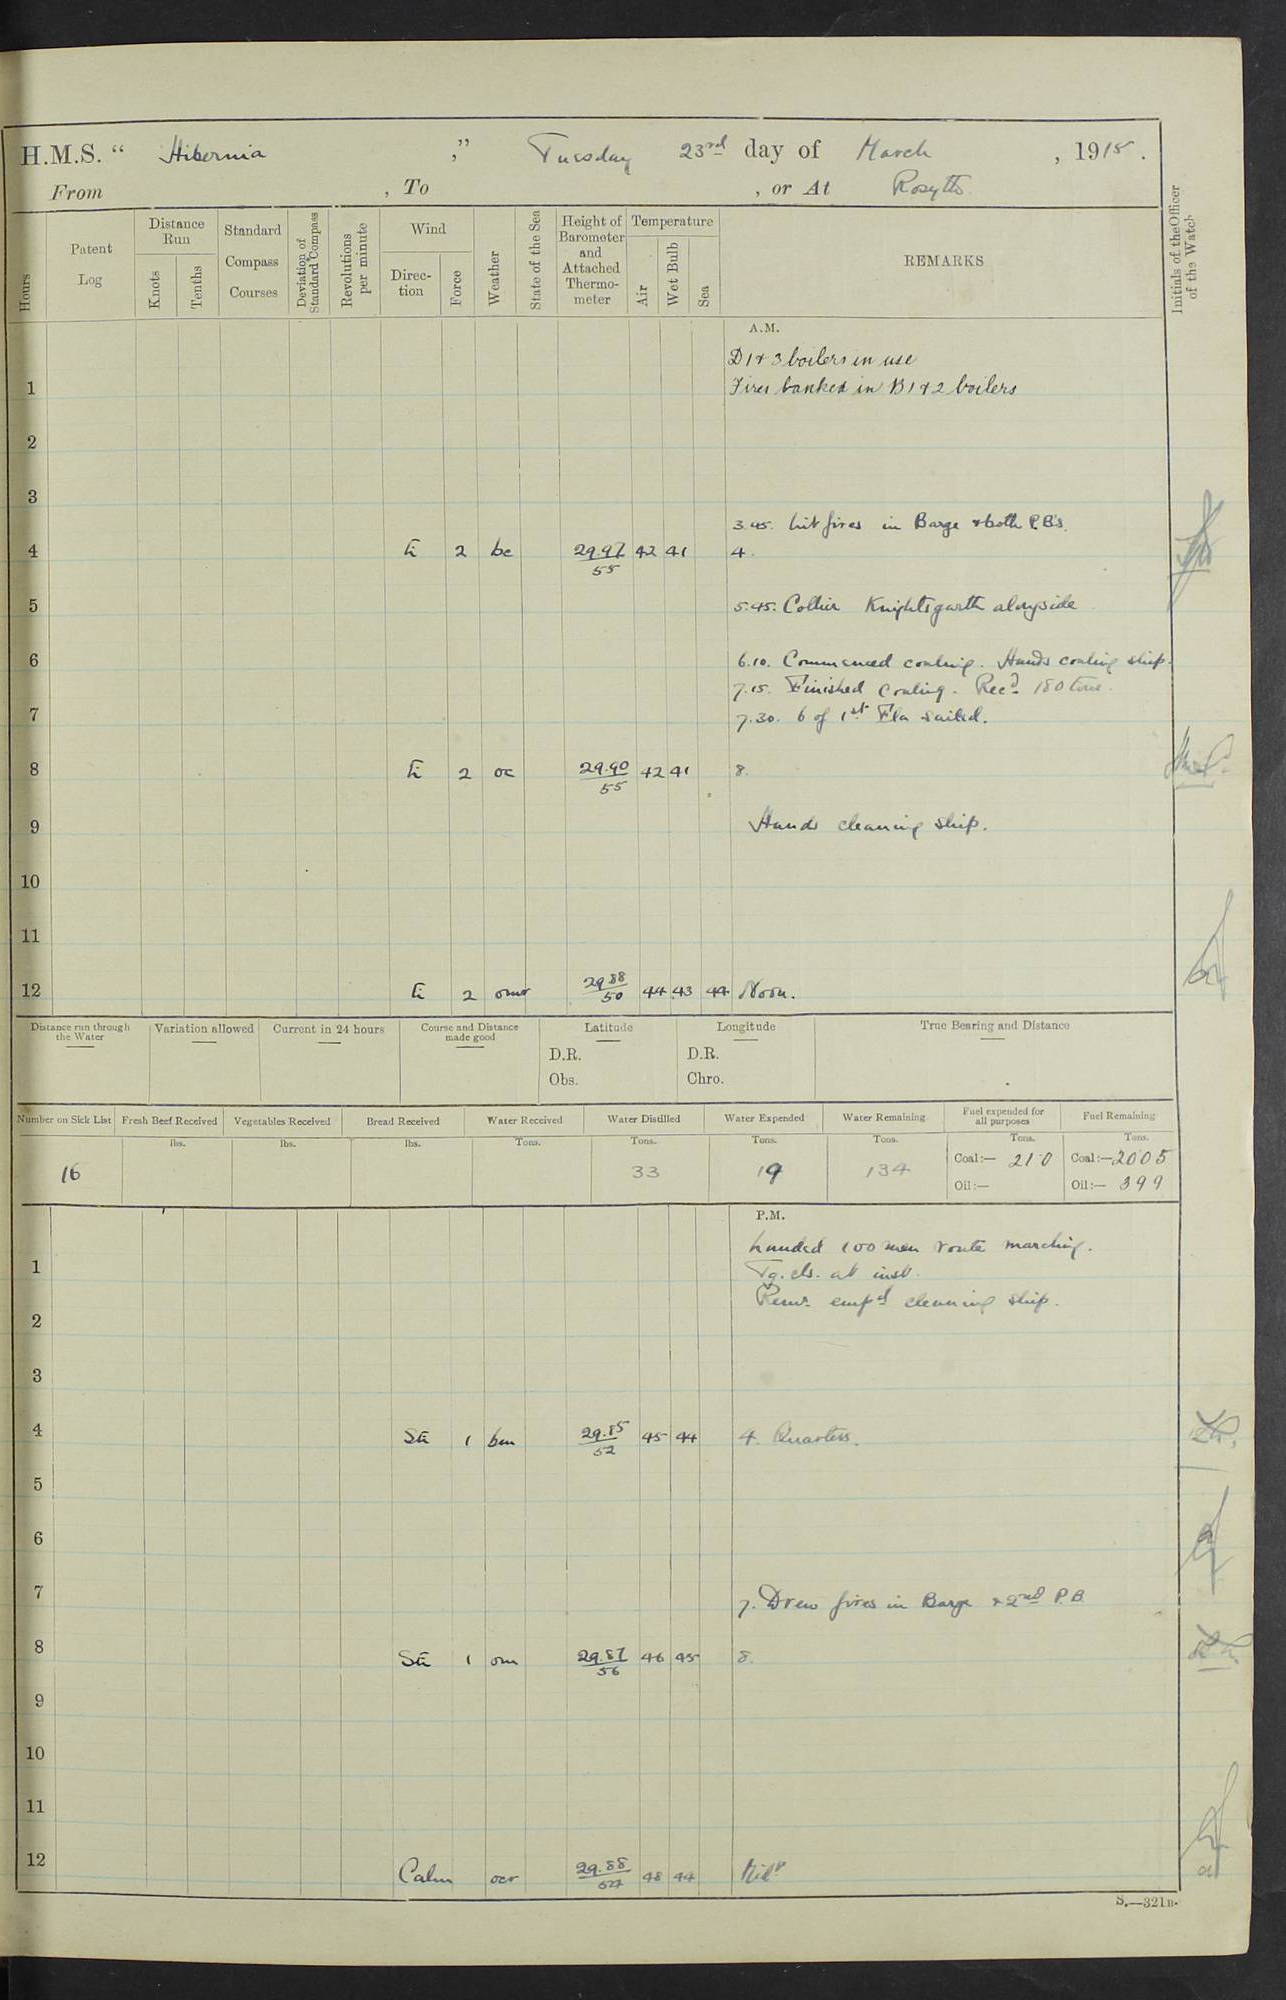 H.M.S. “ Hibernia ,” Tuesday 23rd day of March , 1915 .
From , To , or At Rosyth
Hours
Patent Log
Distance Run
Knots
Tenths
Standard Compass Courses
Deviation of Standard Compass
Revolutions per minute
Wind
Direction
Force
Weather
State of the Sea
Height of Barometer and Attached Thermometer
Temperature
Air
Wet Bulb
Sea
REMARKS
Initials of the Officer of the Watch
A.M.
D 1 & 3 boilers in use
1 Fires banked in B 1 & 2 boilers
2
3
3.45. Lit fires in Barge & both P.B's.
4 E 2 bc 29.97 42 41 4.
55
5 5.45. Collier Knightsgarth alongside
6 6.10. Commenced coaling. Hands coaling ship.
7.15. Finished coaling. Recd 180 tons.
7 7.30. 6 of 1st Fla sailed.
8 E 2 oc 29.90 42 41 8.
55
9 Hands cleaning ship.
10
11
12 E 2 omr 29 88 44 43 44 Noon.
50
Distance run through the Water
Variation allowed
Current in 24 hours
Course and Distance made good
Latitude
D.R.
Obs.
Longitude
D.R.
Chro.
True Bearing and Distance
Number on Sick List
Fresh Beef Received
Vegetables Received
Bread Received
Water Received
Water Distilled
Water Expended
Water Remaining
Fuel expended for all purposes
Fuel Remaining
lbs. lbs. lbs. Tons. Tons. Tons. Tons. Tons. Tons.
16 33 19 134 Coal:— 21·0 Coal:— 2005
Oil:— Oil:— 399
P.M.
Landed 100 men route marching.
1 Tg. cls. at inst.
Remr. empd cleaning ship.
2
3
4 SE 1 bm 29.85 45 44 4. Quarters.
52
5
6
7 7. Drew fires in Barge & 2nd P.B.
8 SE 1 om 29.87 46 45 8.
56
9
10
11
12 Calm ocr 29.88 48 44 Midt
S.—321B.